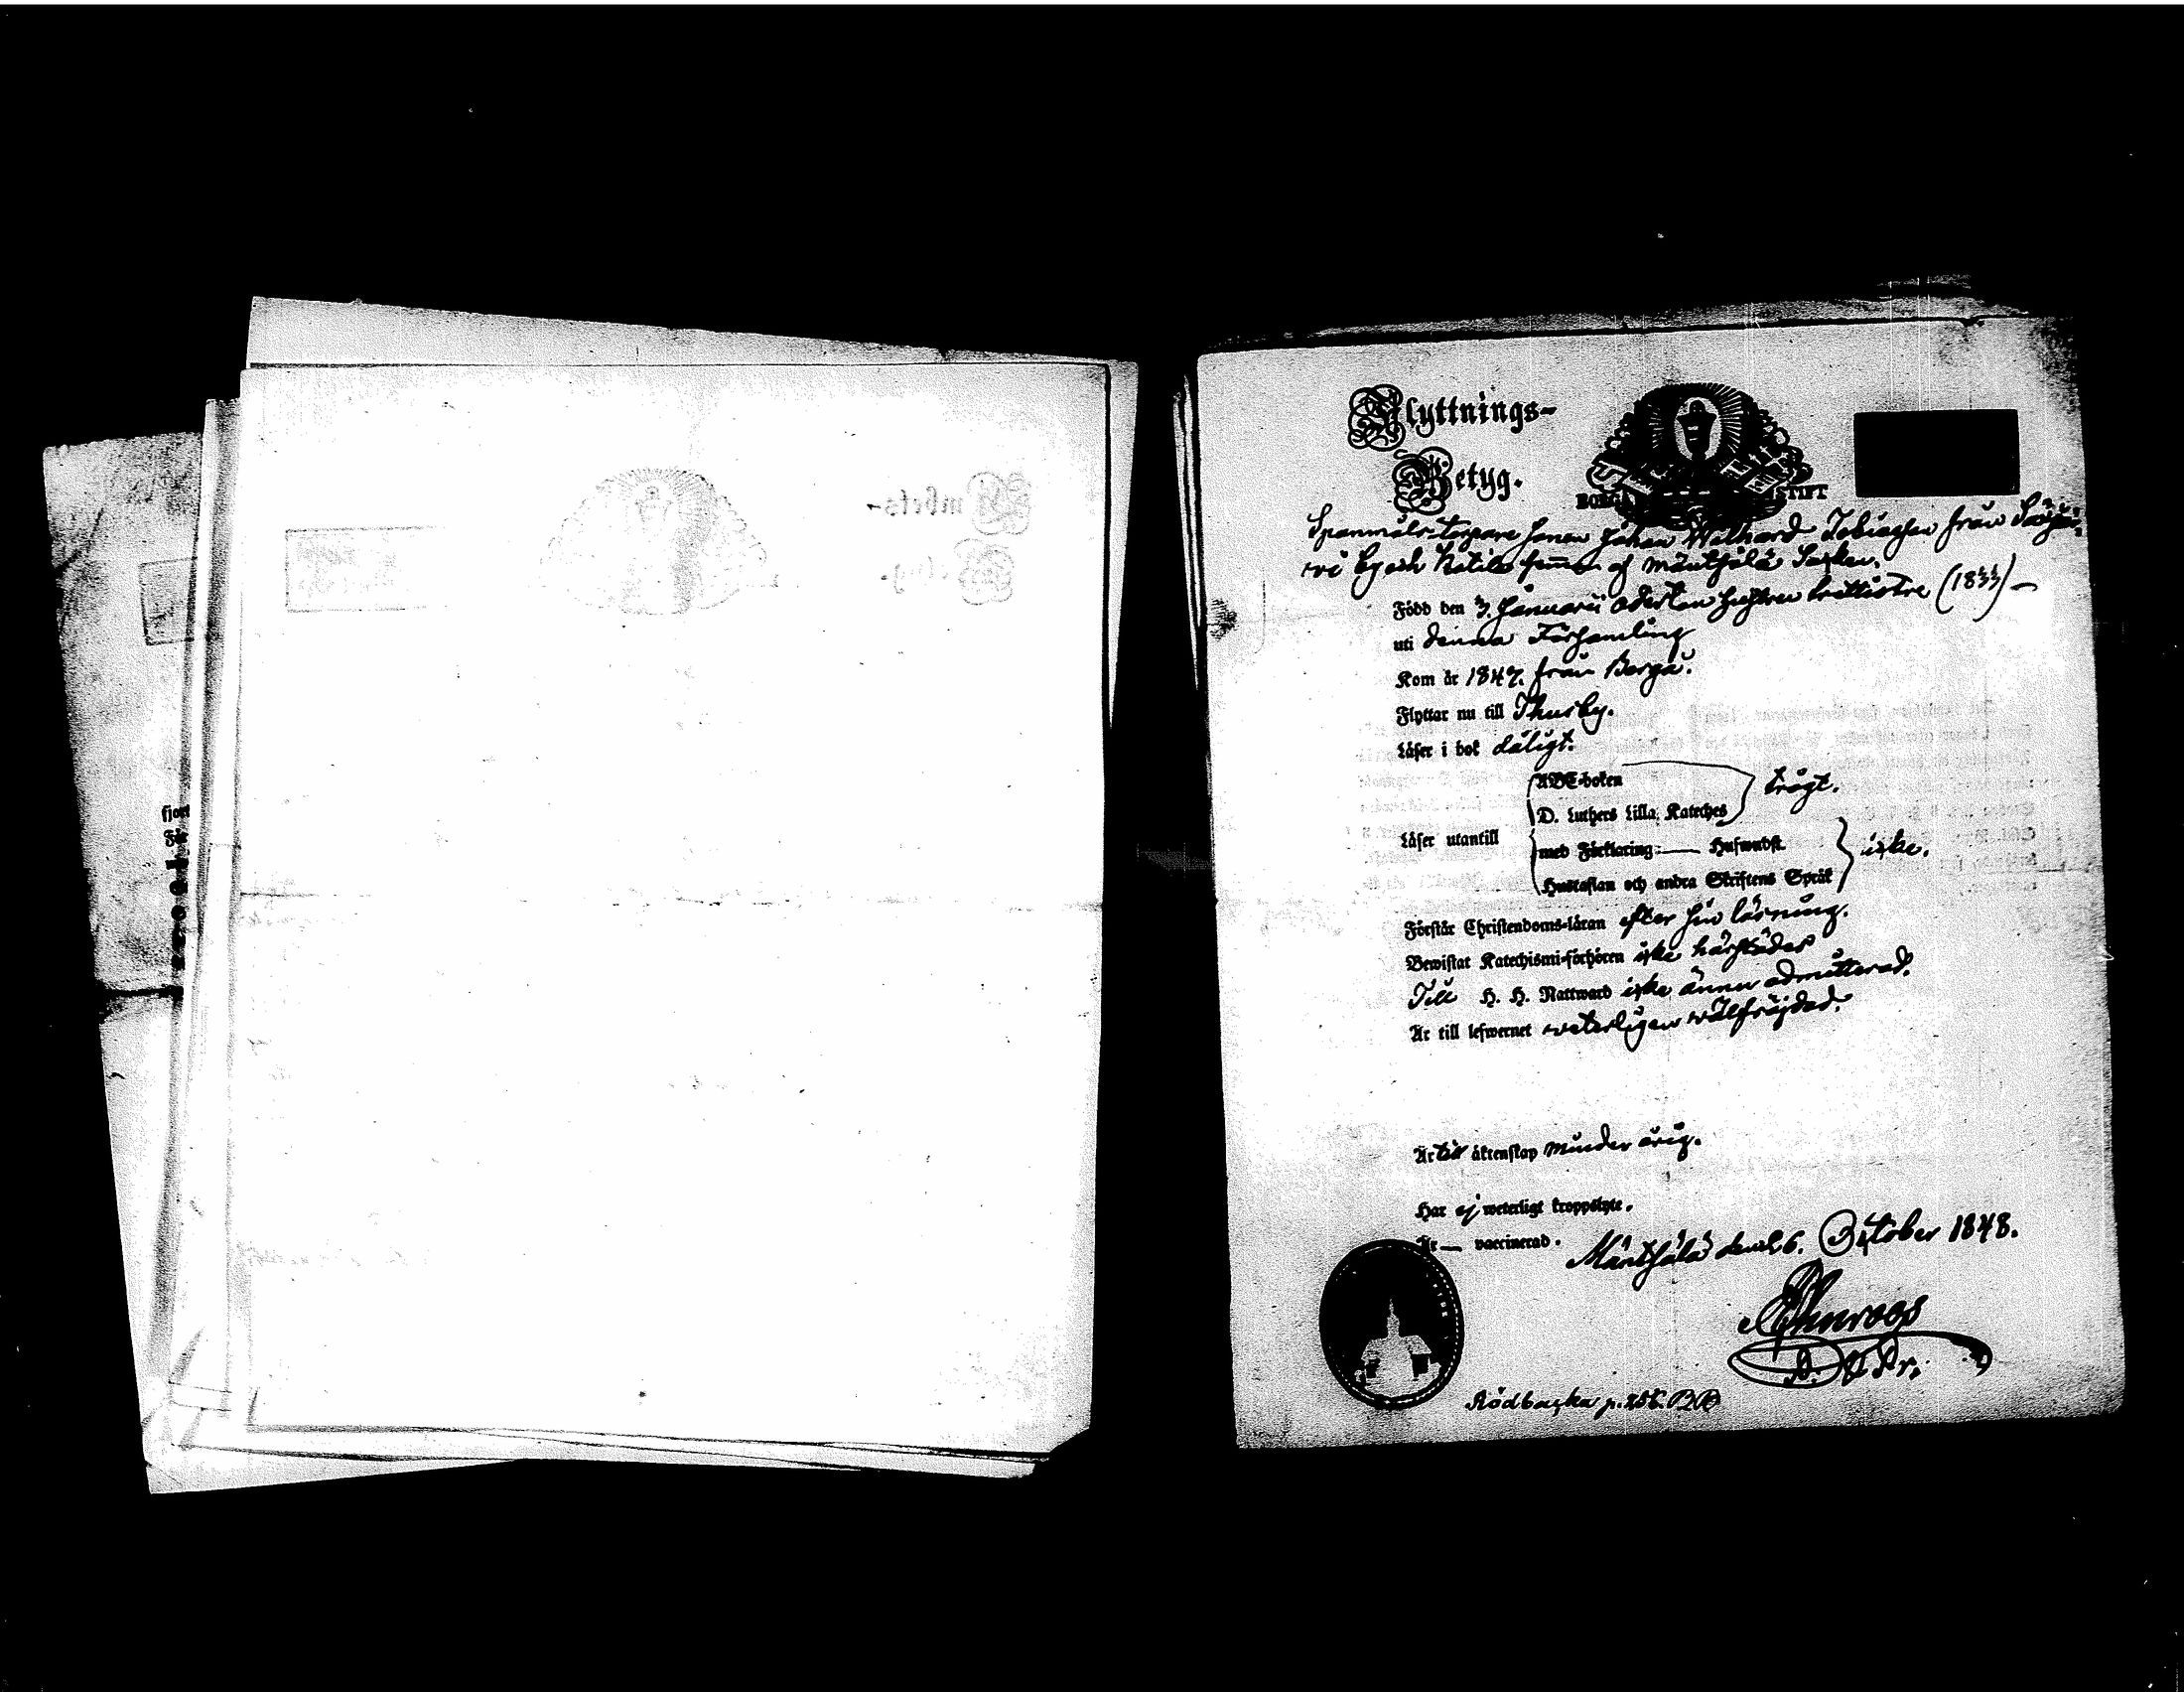 Flyttnings-
Betyg.
BORGÅ STIFT
Spanmåls-torpare sonen Johan Wilhard Tobiasson från
by och Kotila hemman af Mäntsälä Socken.
Född den 3/7 Januarii Adertonhundra trettiotre (1833) —
uti denna Församling
Kom år 1847. från Borgå.
Flyttar nu till Thusby.
Läser i bok dåligt.
ABC-boken
trögt.
D. Luthers Lilla Kateches
Läser utantill
med Förklaring — Hufwudst.
icke.
Hustaflan och andra Skriftens Språk
Förstår Christendoms-läran efter sin läsning.
Bewistat Katechismi-förhören icke härstädes
Till H. H. Nattward icke ännu admitterad.
Är till lefwernet weterligen wälfräjdad.
Är till äktenskap minder årig.
Har ej weterligt kroppslyte.
Är — vaccinerad.
Mäntsälä den 26. October 1848.
Rödbacka p.
Ambets-
Betyg.